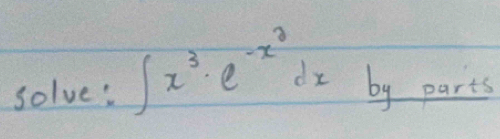 solve: ∫ x³ · e^(-x²) dx by parts